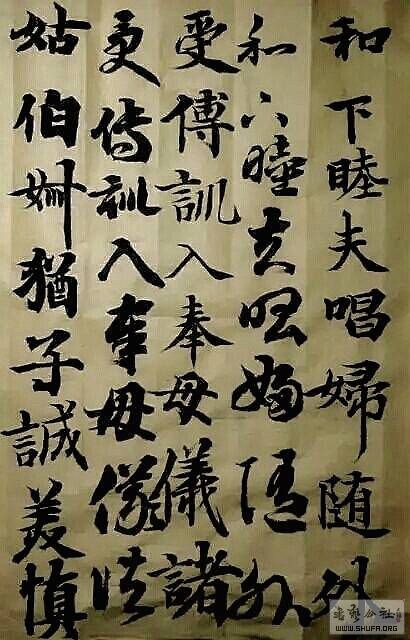 和下睦夫唱婦随外
和下睦夫唱婦随外
受傅訓入奉母儀諸
受傅訓入奉母儀諸
姑伯叔猶子誠美慎
書藝公社
WWW.SHUFA.ORG